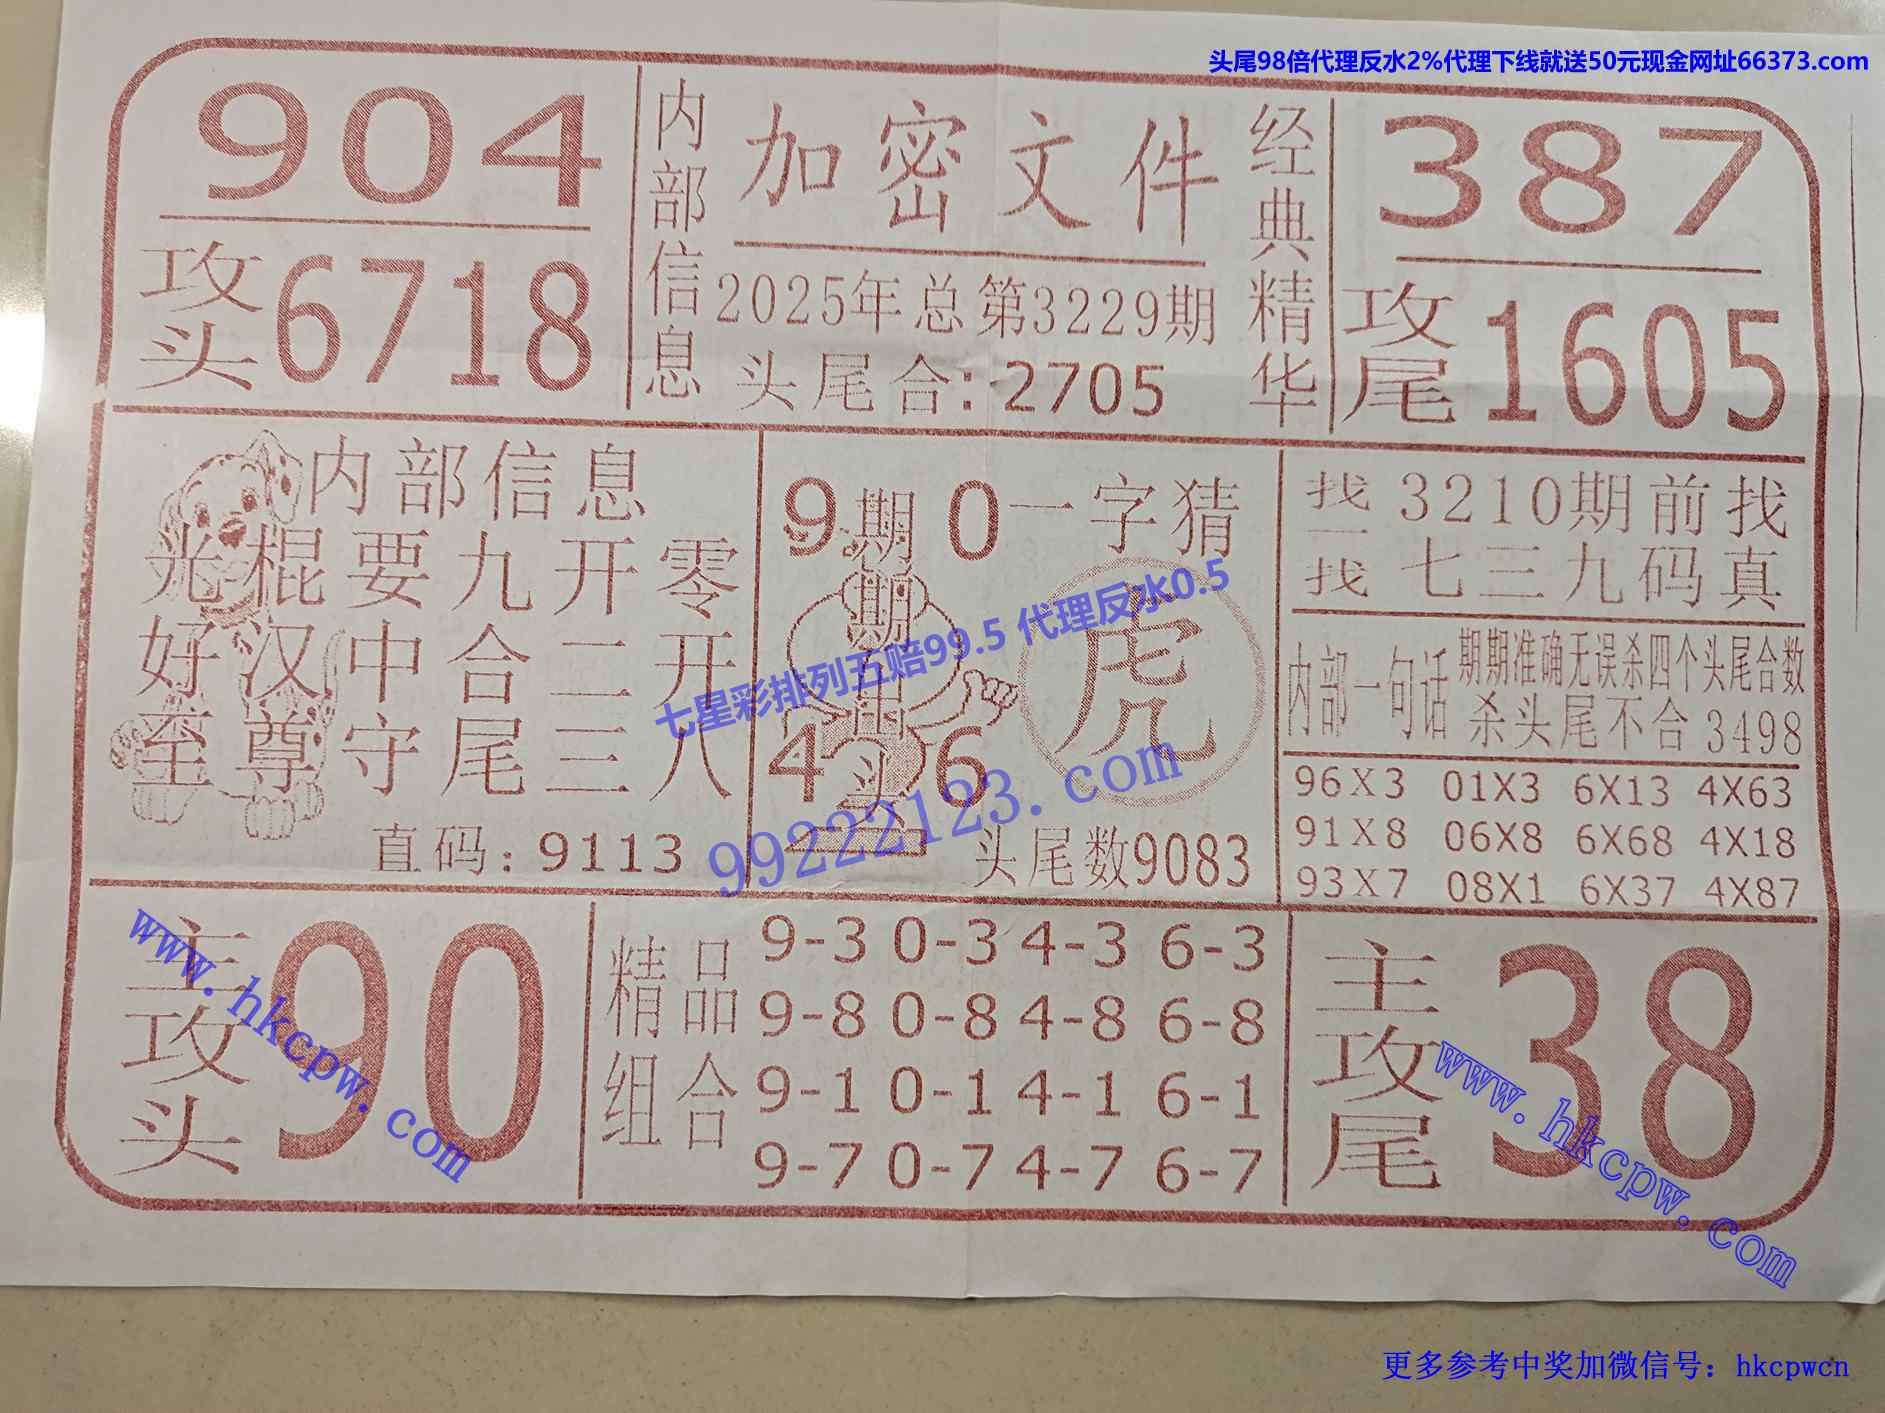 头尾98倍代理反水2%代理下线就送50元现金网址66373.com
904
攻头6718
内部信息
加密文件
2025年总第3229期
头尾合:2705
经典精华
387
攻尾1605
内部信息
光棍要九开零
好汉中合二开
至尊守尾三八
直码:9113
9 0
期期中头
4 6
一字猜
虎
头尾数9083
七星彩排列五赔99.5 代理反水0.5
99222123.com
找一找
3210期前找
七三九码真
内部一句话
期期准确无误杀四个头尾合数
杀头尾不合3498
96X3 01X3 6X13 4X63
91X8 06X8 6X68 4X18
93X7 08X1 6X37 4X87
主攻头90
www.hkcpw.com
精品组合
9-3 0-3 4-3 6-3
9-8 0-8 4-8 6-8
9-1 0-1 4-1 6-1
9-7 0-7 4-7 6-7
主攻尾38
www.hkcpw.com
更多参考中奖加微信号：hkcpwcn